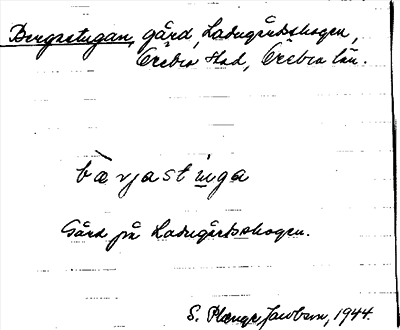 Bergastugan, gård, Ladugårdsskogen,
Örebro stad, Örebro län.
bæ̀rjastinga
Gård på Ladugårdsskogen.
S. Plænge Jacobson, 1944.